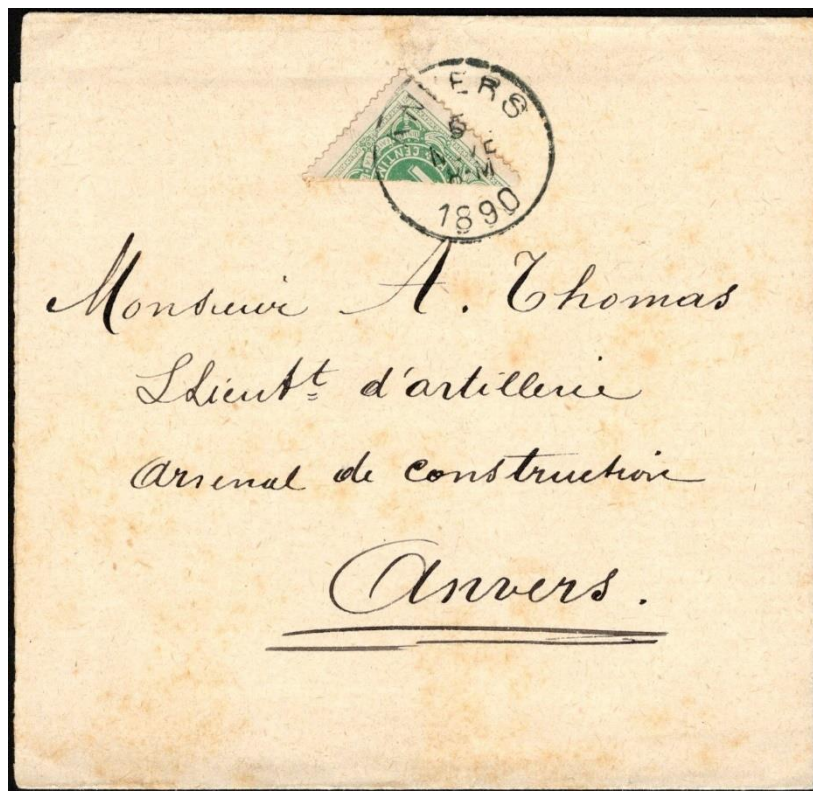 ANVERS
1890
CENTIM
Monsieur A. Thomas
d'artillerie
Arsenal de construction
Anvers.